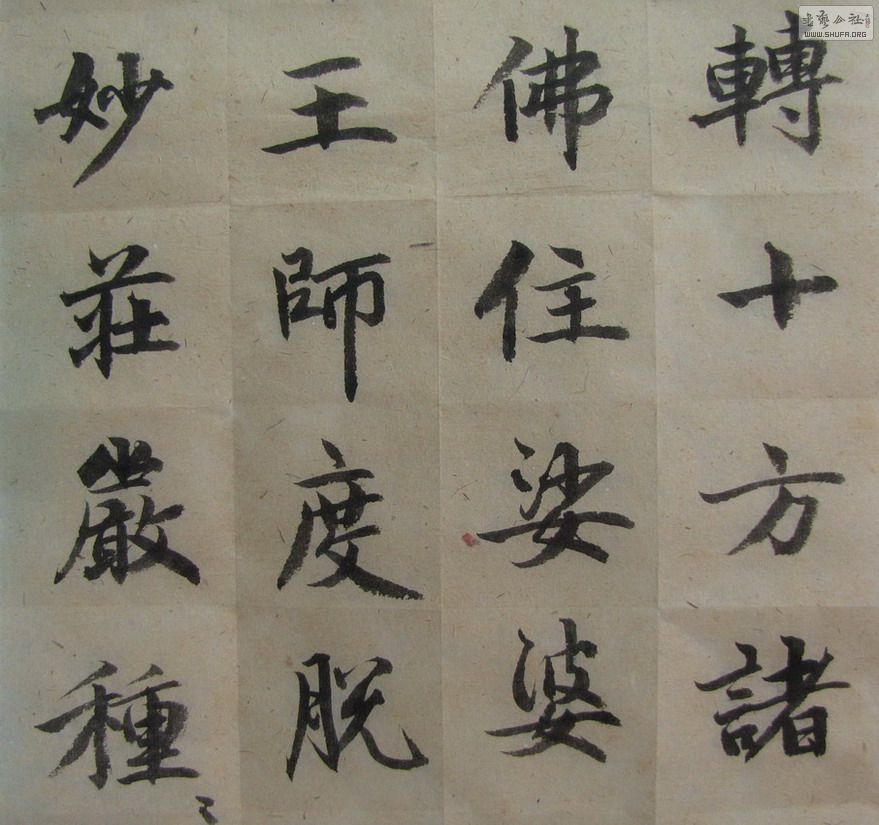 轉十方諸
佛住娑婆
王師度脫
妙莊嚴種〻
書藝公社
WWW.SHUFA.ORG